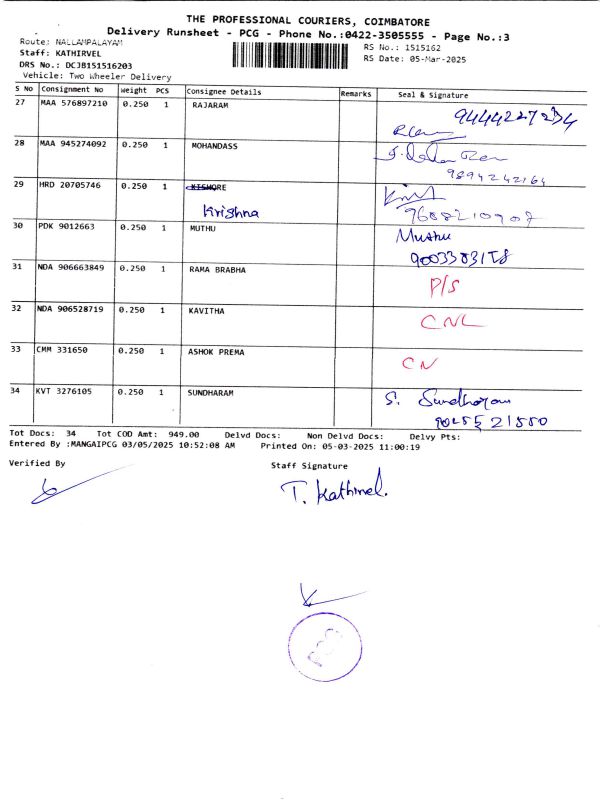 THE PROFESSIONAL COURIERS, COIMBATORE
Delivery Runsheet - PCG - Phone No.:0422-3505555 - Page No.:3
Route: NALLAMPALAYAM
Staff: KATHIRVEL
DRS No.: DCJB151516203
Vehicle: Two Wheeler Delivery
RS No.: 1515162
RS Date: 05-Mar-2025
S No Consignment No Weight PCS Consignee Details Remarks Seal & Signature
27 MAA 576897210 0.250 1 RAJARAM 9444227234
28 MAA 945274092 0.250 1 MOHANDASS
9894242164
29 HRD 20705746 0.250 1 KISHORE
Krishna 9688210907
30 PDK 9012663 0.250 1 MUTHU Muthu
9003383158
31 NDA 906663849 0.250 1 RAMA BRABHA P/S
32 NDA 906528719 0.250 1 KAVITHA CNL
33 CMM 331650 0.250 1 ASHOK PREMA CN
34 KVT 3276105 0.250 1 SUNDHARAM S. Sundharam
Tot Docs: 34 Tot COD Amt: 949.00 Delvd Docs: Non Delvd Docs: Delvy Pts:
Entered By :MANGAIPCG 03/05/2025 10:52:08 AM Printed On: 05-03-2025 11:00:19
Verified By Staff Signature
T. Kathirvel.
PCG